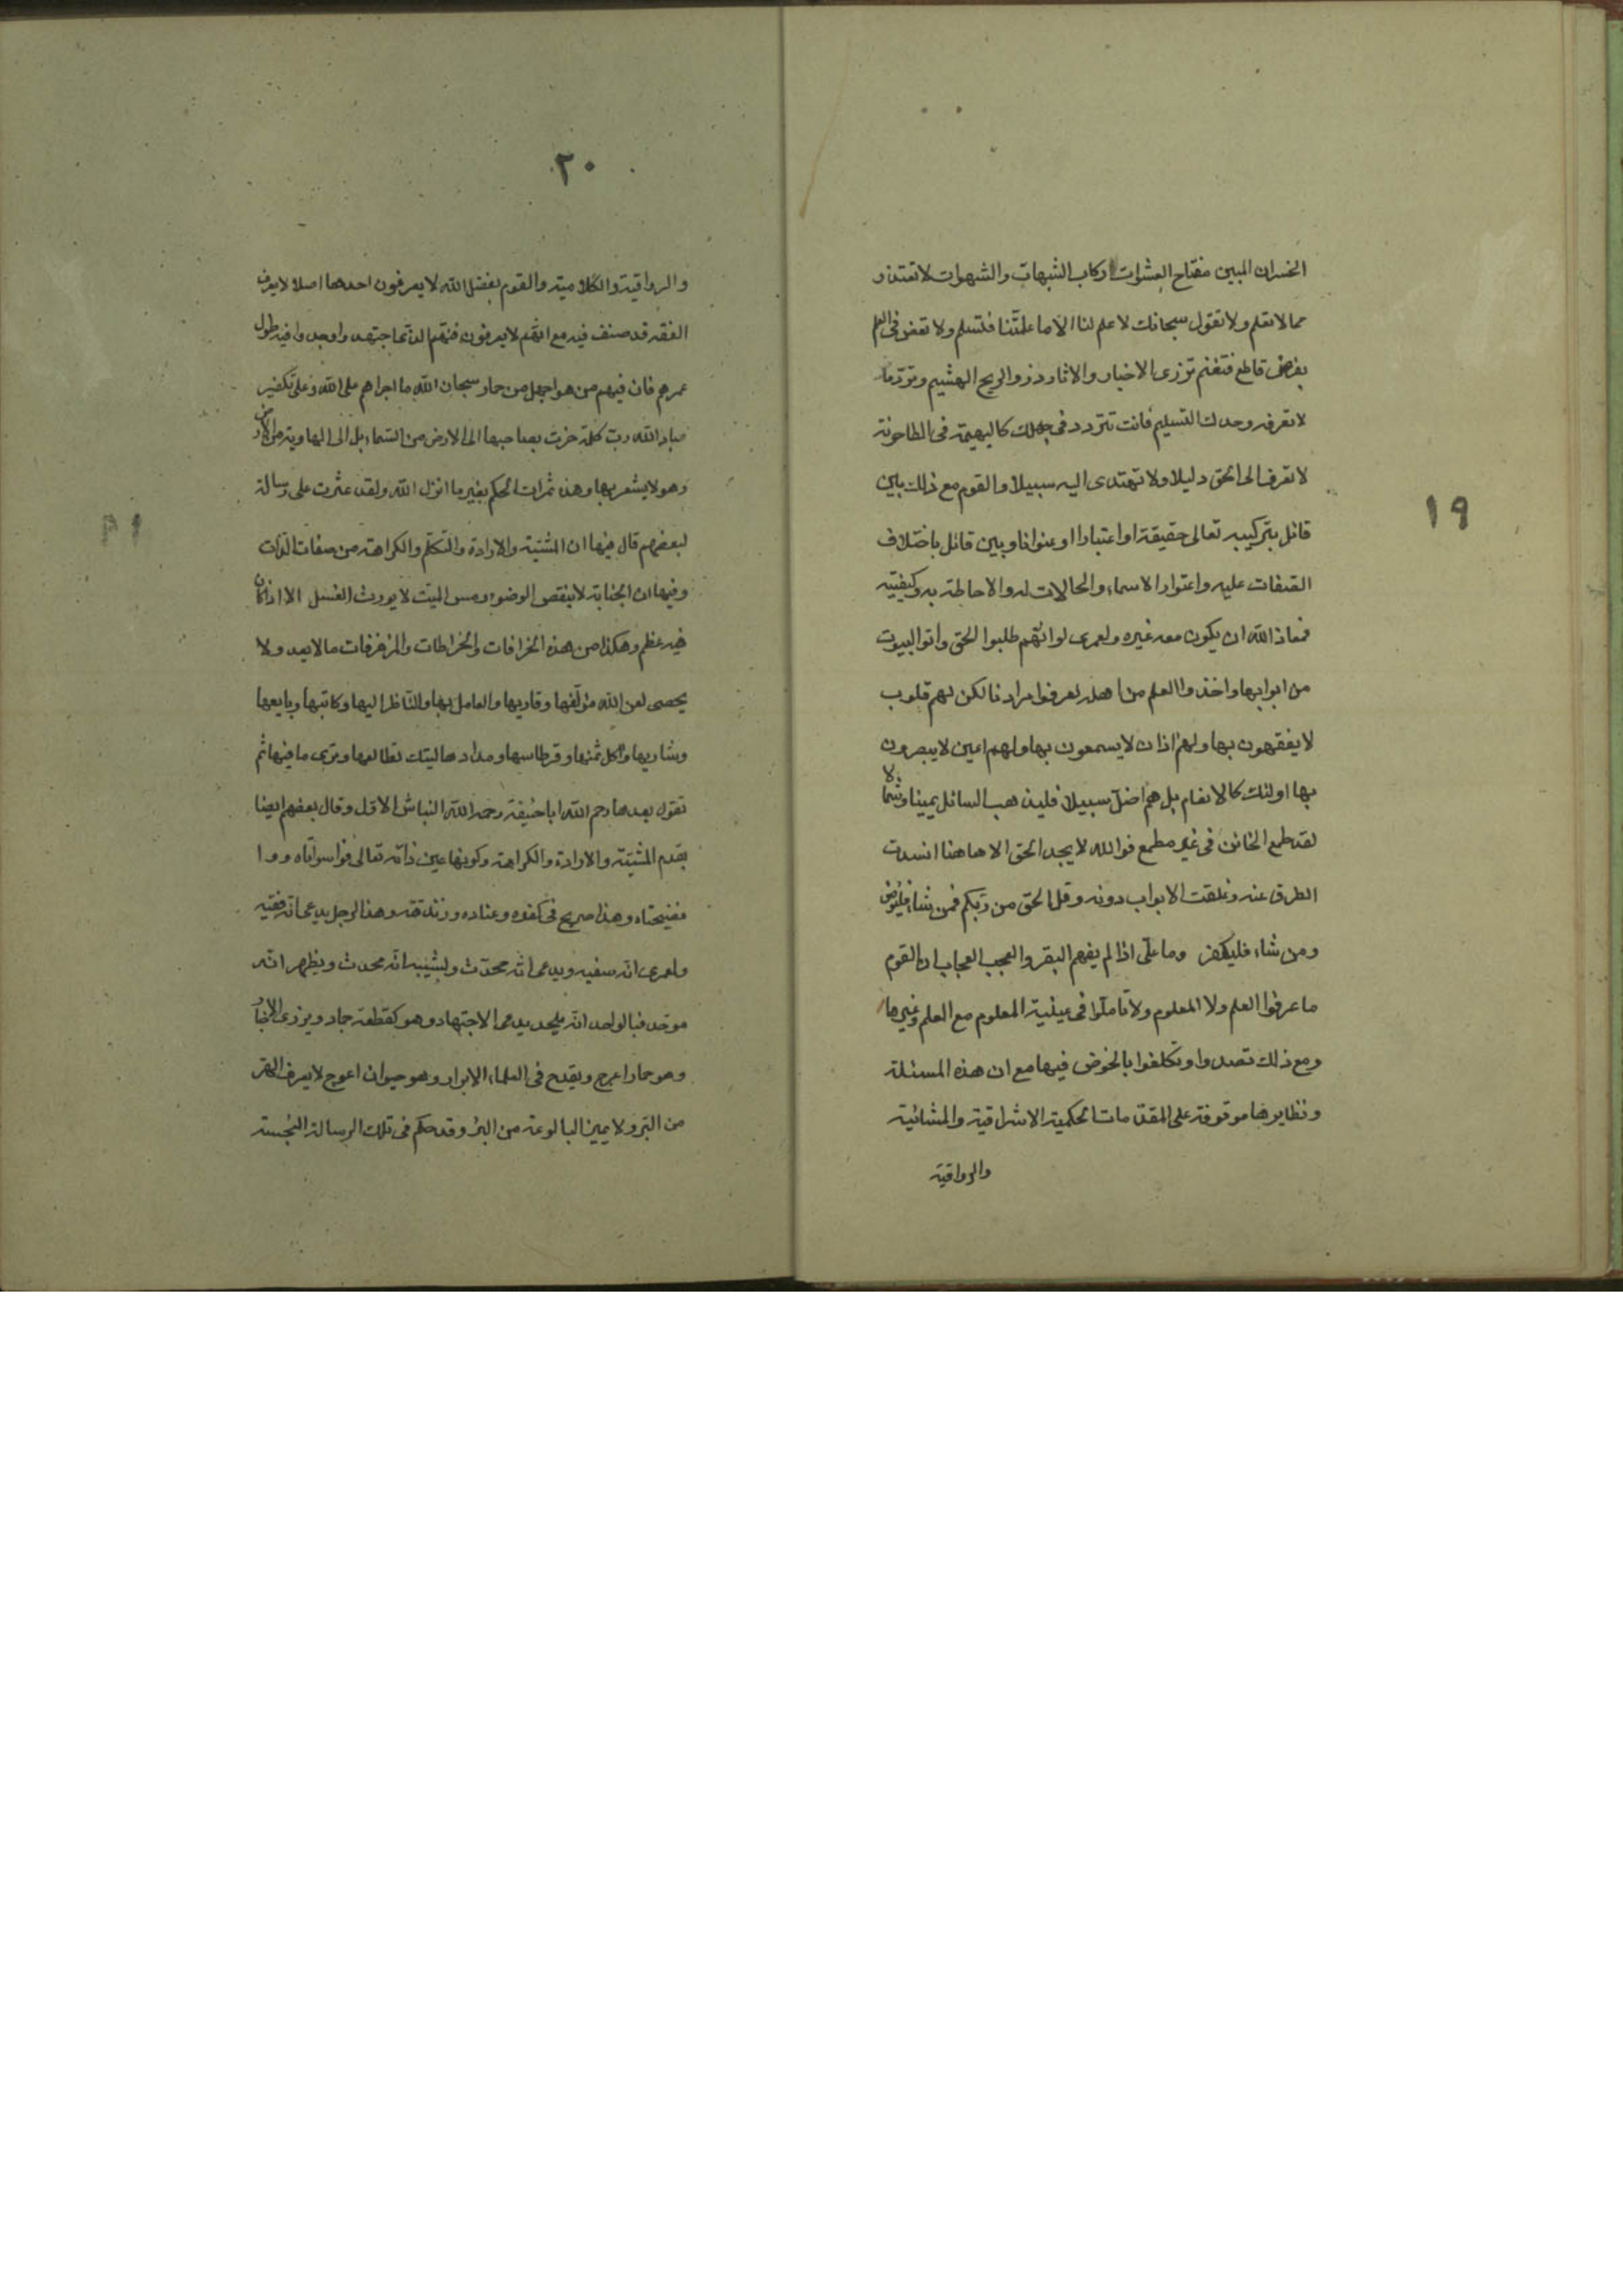 ١٩
الخسران المبين مفتاح العشوات ركاب الشبهات والشهوات لا تعتذر
مما لا تعلم ولا تقول سبحانك لا علم لنا الا ما علمتنا فتسلم ولا تعض في العلم
بضرس قاطع فتغنم تذري الاخبار والاثار ذرو الريح الهشيم وترد ما
لا تعرفه وحدك التسليم فانت تتردد في جهلك كالبهيمة في الطاحونة
لا تعرف الى الحق دليلا ولا تهتدى اليه سبيلا والقوم مع ذلك بين
قائل بتركيبه تعالى حقيقة او اعتبارا او عنوانا وبين قائل باختلاف
الصفات عليه واعتوار الاسماء والحالات له والاحاطة به وكيفيته
فمعاذ الله ان يكون معه غيره ولعمرى لو انهم طلبوا الحق واتوا البيوت
من ابوابها واخذوا العلم من اهله لعرفوا مرادنا لكن لهم قلوب
لا يفقهون بها ولهم اذان لا يسمعون بها ولهم اعين لا يبصرون
بها اولئك كالانعام بل هم اضل سبيلا فليذهب السائل يمينا وشمالا
لقد طمع الخائن في غير مطمع فوالله لا يجد الحق الا هاهنا انسدت
الطرق عنه وغلقت الابواب دونه وقل الحق من ربكم فمن شاء فليؤمن
ومن شاء فليكفر وما على اذا لم يفهم البقر والعجب العجاب ان القوم
ما عرفوا العلم ولا المعلوم ولا تاملوا في عينية المعلوم مع العلم وغيرها
ومع ذلك تصدوا وتكلفوا بالخوض فيها مع ان هذه المسئلة
ونظايرها موقوفة على المقدمات الحكمية الاشراقية والمشائية
والرواقية
٢٠
والرواقية والكلامية والقوم بفضل الله لا يعرفون احدها اصلا لا يعرف
الفقه قد صنف فيه مع انهم لا يعرفون فنهم الدائما جتهدوا وجدوا فيه طول
عمرهم فان فيهم من هو اجهل من حمار سبحان الله ما اجراهم على الله وعلى تكفير
عباد الله رب كلمة خرت بصاحبها الى الارض من السماء بل الى الهاوية من الارض
وهو لا يشعر بها وهذه ثمرات الحكم بغير ما انزل الله ولقد عثرت على رسالة
لبعضهم قال فيها ان المشية والارادة والتكلم والكراهة من صفات الذات
وفيها ان الجنابة لا ينقض الوضوء ومس الميت لا يورث الغسل الا اذا كان
فيه عظم وهكذا من هذه الخرافات والخراطات والمزخرفات ما لا يعد ولا
يحصى لعن الله مؤلفها وقاريها والعامل بها والناظر اليها وكاتبها وبايعها
وشاريها واكل ثمنها وقرطاسها ومدادها ليتك تطالعها وترى ما فيها ثم
تقول بعدها رحم الله ابا حنيفة رحم الله النباش الاول وقال بعضهم ايضا
بقدم المشية والارادة والكراهة وكونها عين ذاته تعالى فوا سواتاه ووا
فضيحتاه وهذا صريح في كفره وعناده وزندقته وهذا الرجل يدعى انه فقيه
ولعمرى انه سفيه ويدعى انه محدث وليشيبه انه محدث ويظهر انه
موحد فبالواحد انه ملحد يدعى الاجتهاد وهو كقطعة جماد ويزرى الاخبار
وهو حمار اعرج ويقدح في العلماء الابرار وهو حيوان اعوج لا يعرف الهر
من البر ولا يميز البالوعة من البئر وقد حكم في تلك الرسالة النجسة